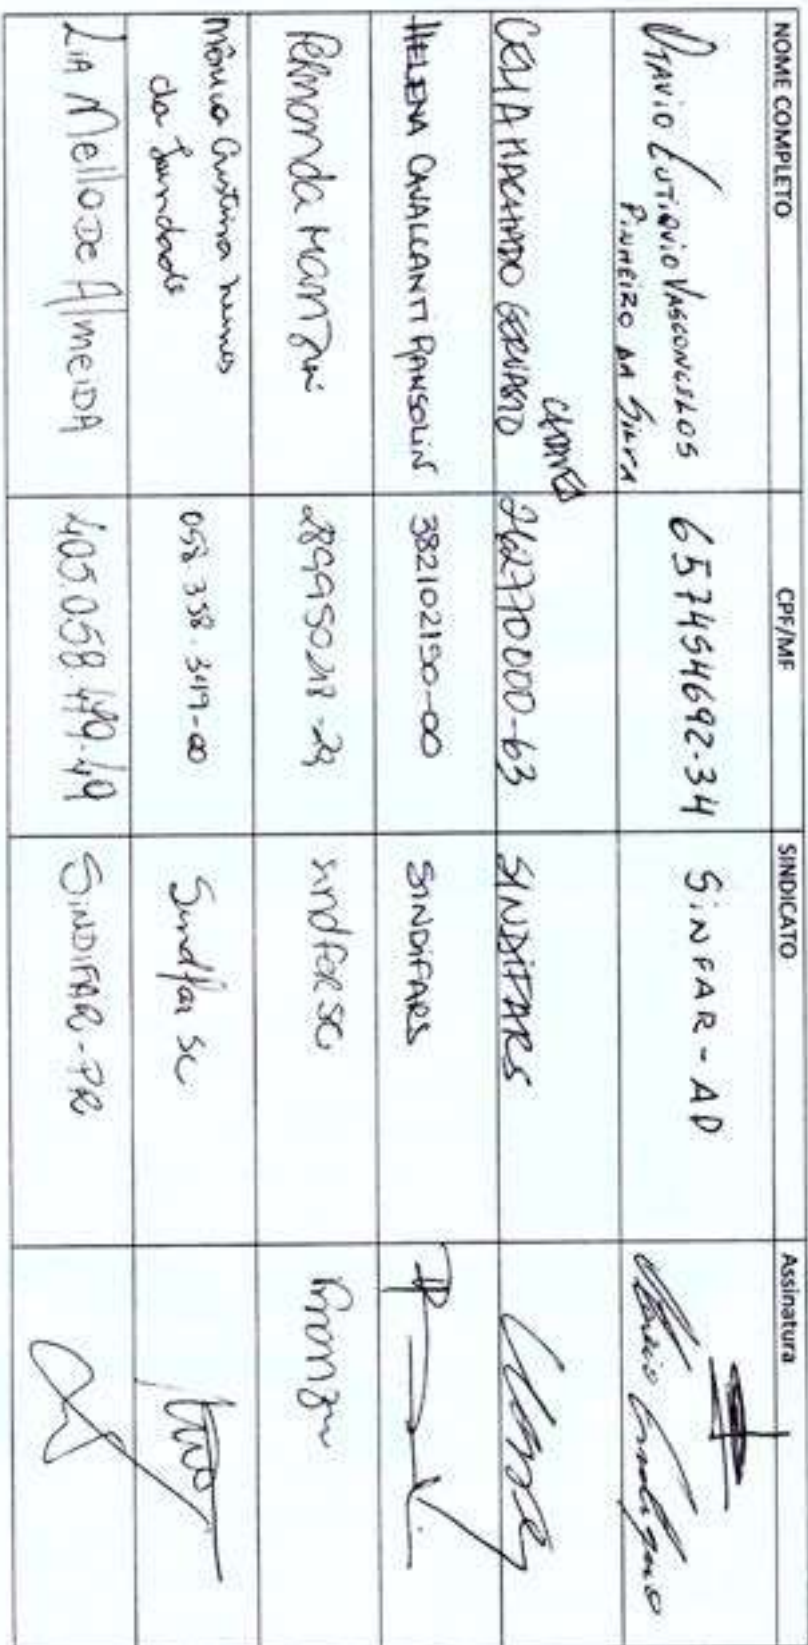 NOME COMPLETO CPF/MF SINDICATO Assinatura
OTAVIO EUTIQUIO VASCONCELOS
PINHEIRO DA SILVA
657454692-34 SINFAR - AD
CELIA MACHADO GERVASIO
CHAVES
262770000-63 SINDIFARS
HELENA CAVALCANTI RANSOLIN 382102150-00 SINDIFARS
Fernanda Manzini SindFar SC
Mônica Cristina Nunes
da Trindade
058.358.319-00 Sindfar SC
LIA Mello De AlmeIDA SINDIFAR-PR